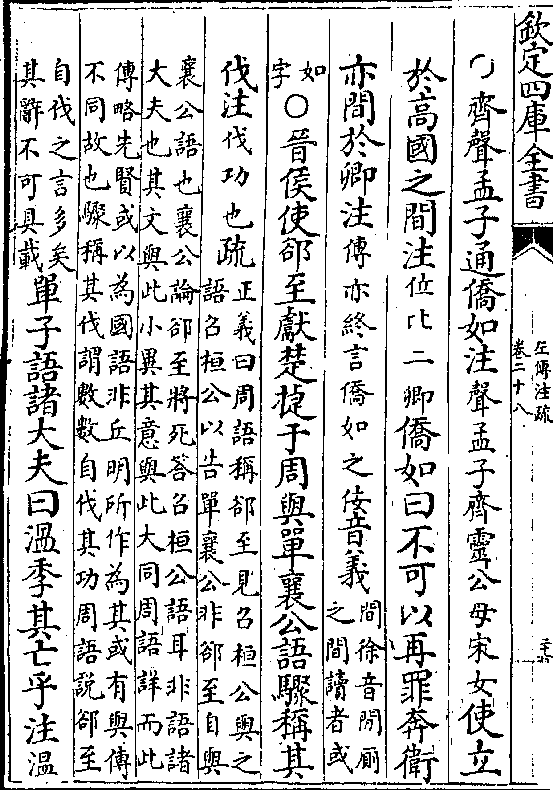 欽定四庫全書
左傳注疏
卷二十八
○齊聲孟子通僑如注聲孟子齊靈公母宋女使立
於高國之間注位比二卿僑如曰不可以再罪奔衛
亦間於卿注傳亦終言僑如之佞音義間徐音閒厠
之間讀者或
如
字○晉侯使郤至獻楚捷于周與單襄公語驟稱其
伐注伐功也疏正義曰周語稱郤至見召桓公與之
語召桓公以告單襄公非郤至自與
襄公語也襄公論郤至將死荅召桓公語耳非語諸
大夫也其文與此小異其意與此大同周語詳而此
傳略先賢或以為國語非丘明所作為其或有與傳
不同故也驟稱其伐謂數數自伐其功周語說郤至
自伐之言多矣
其辭不可具載單子語諸大夫曰溫季其亡乎注溫